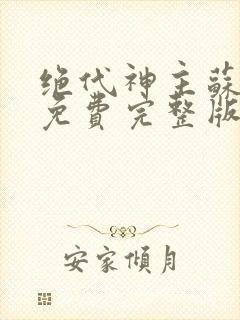 绝代神主蘇
免費完整版
安家傾月